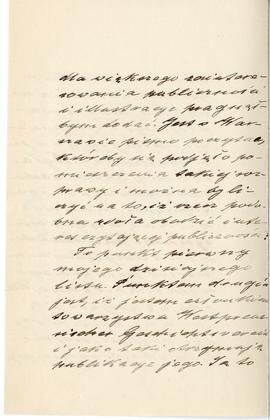 dla większego zaintere-
sowania publiczności
i illustracye pragnął-
bym dodać. Jest w War-
szawie pismo poczytne,
któreby się podjęło po-
mieszczenia takiej roz-
prawy i można by li-
czyć na to, iż rzecz podo-
bna zdoła obudzić inte-
res czytającej publiczności?
To punkt pierwszy
mojego dzisiejszego
listu. Punktem drugim
jest, iż jestem członkiem
towarzystwa Westpreus-
sischer Geschichtsverein
i jako taki otrzymuję
publikacye jego. Za to